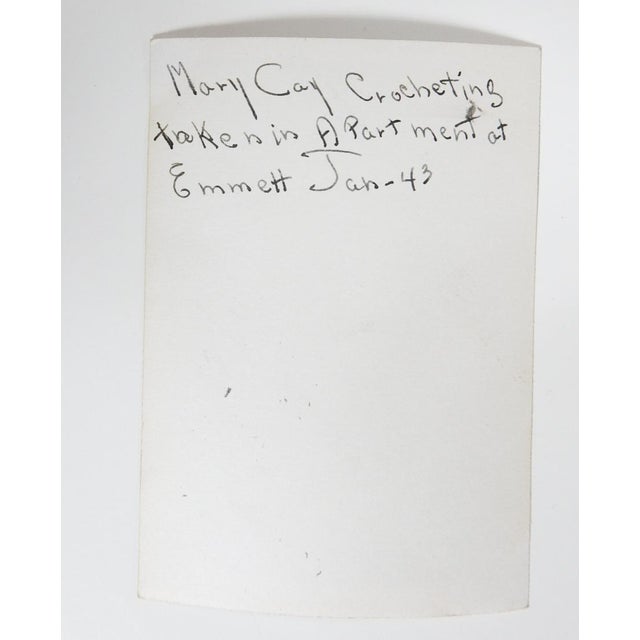 Mary Cay Crocheting
taken in APartment at
Emmett Jan-43